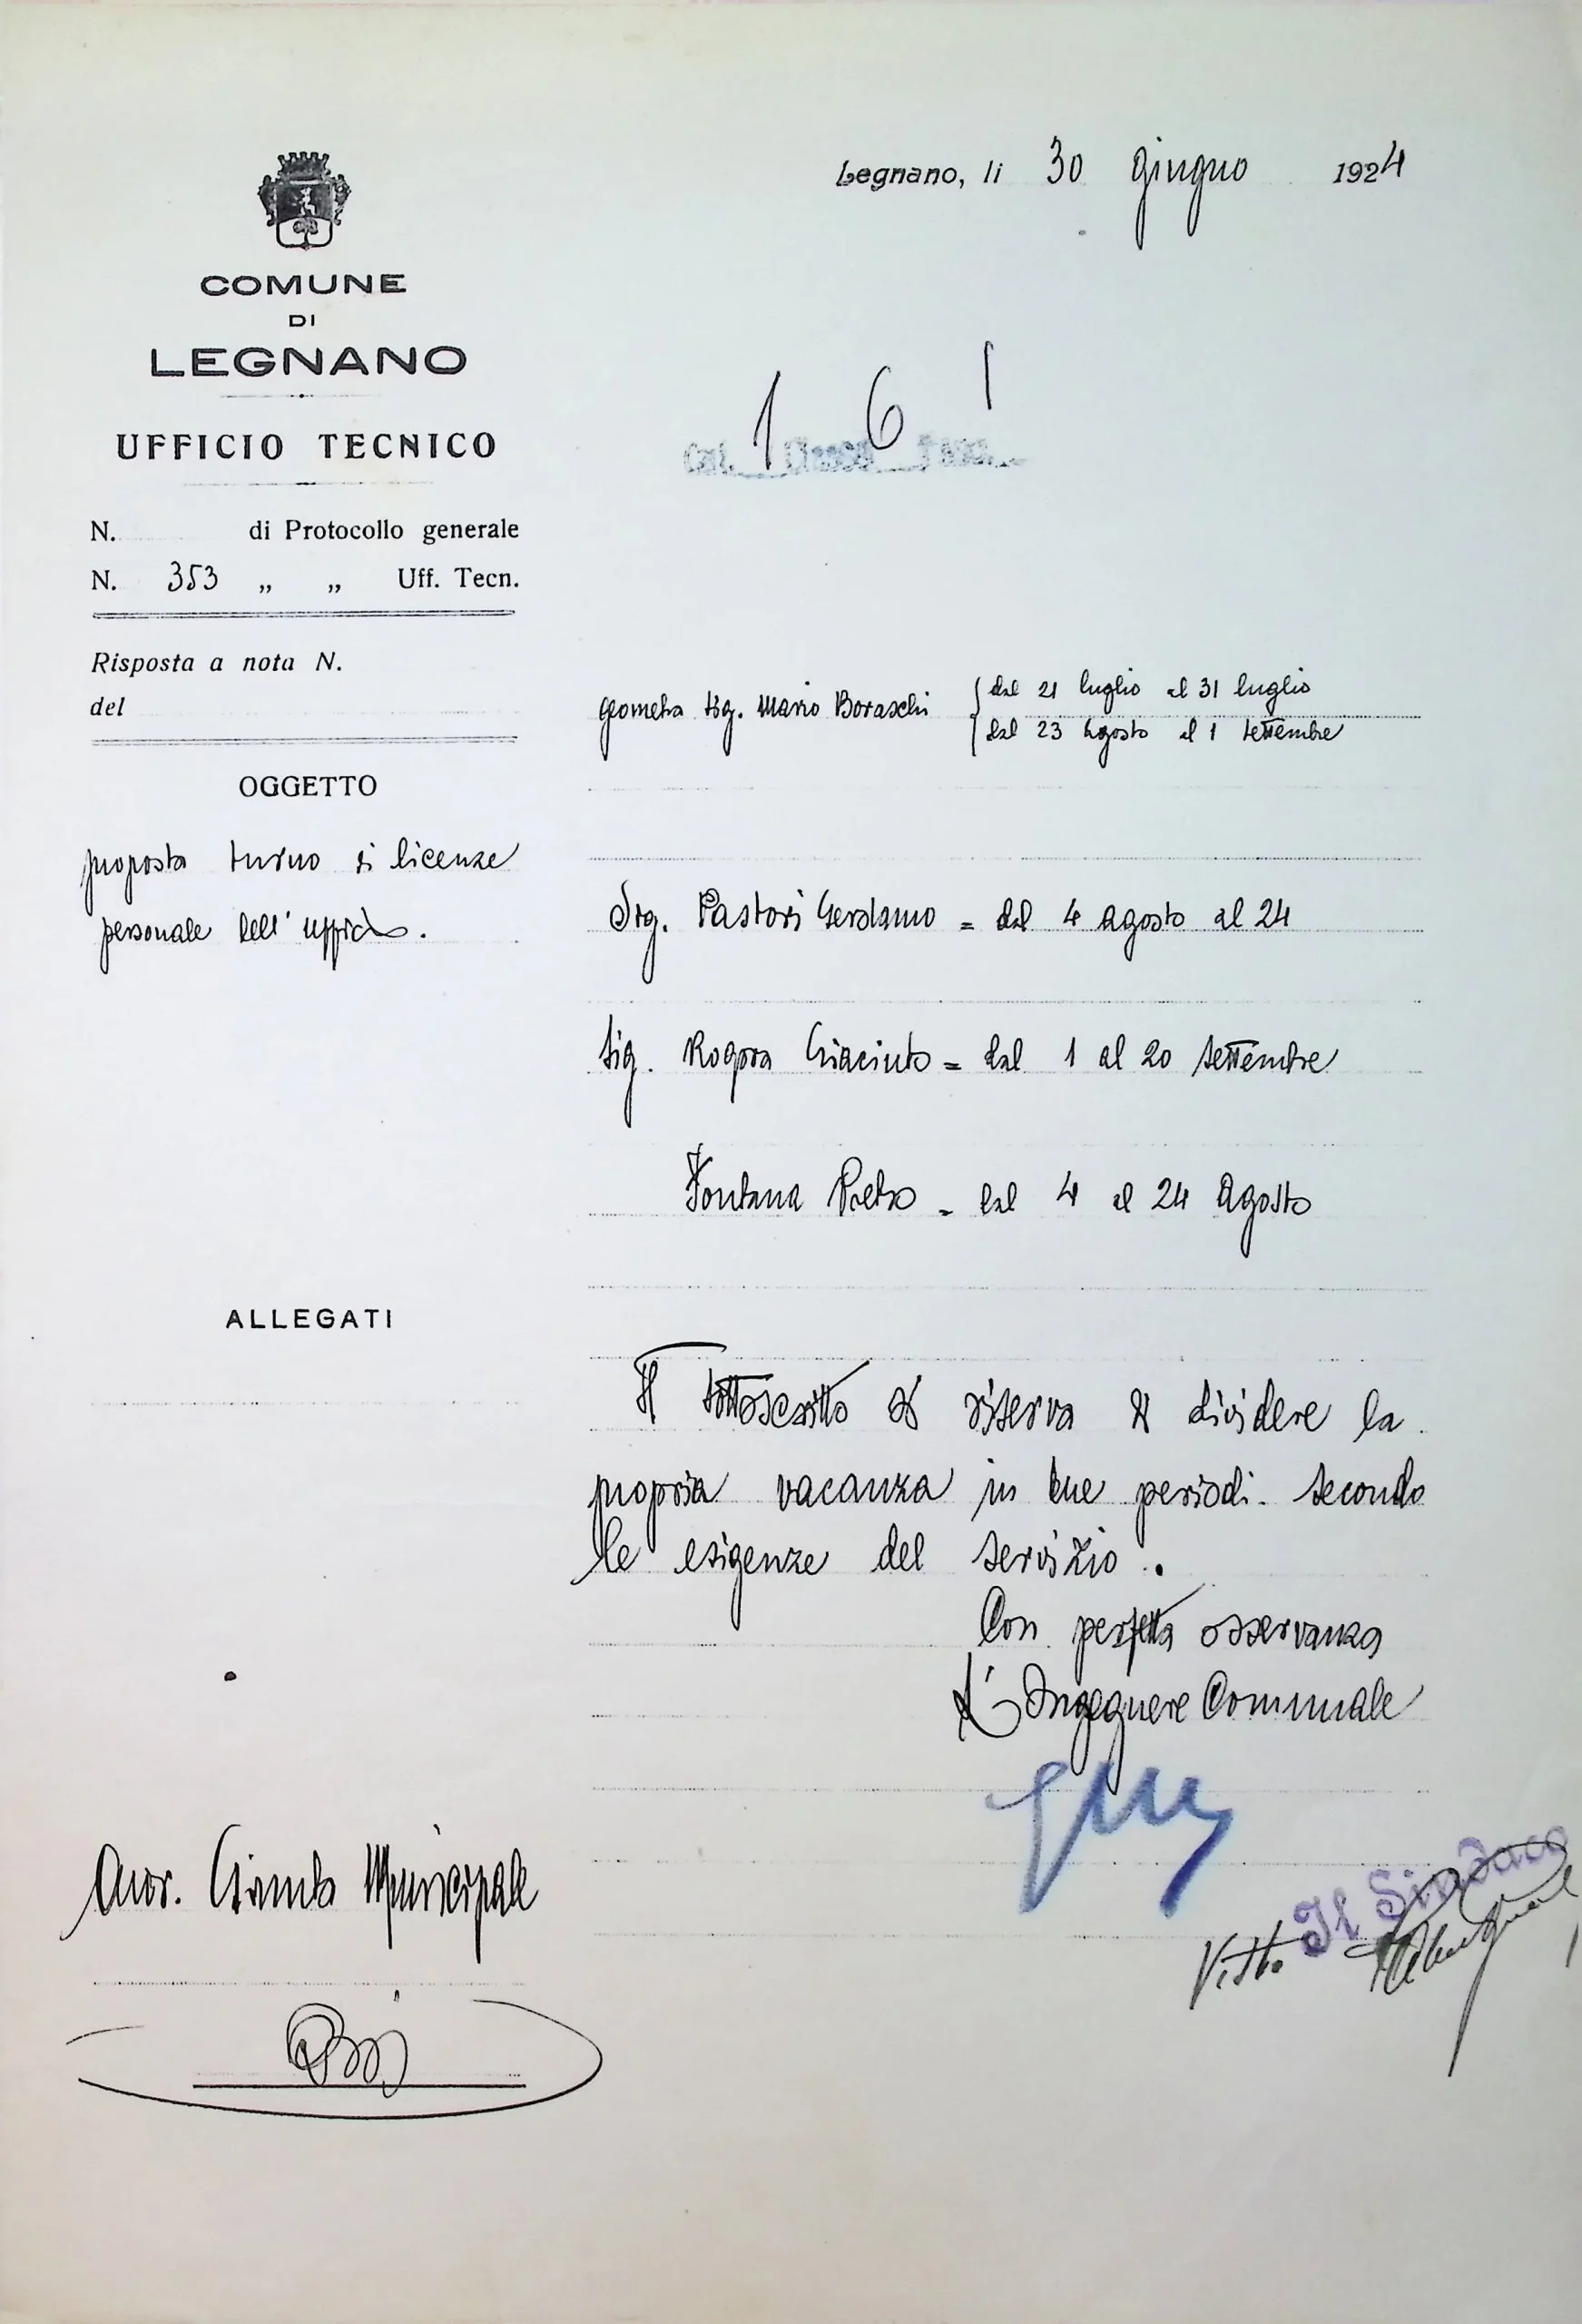 Legnano, li 30 giugno 1924
COMUNE
DI
LEGNANO
UFFICIO TECNICO
1 6 1
Cat. Classe Fasc.
N. di Protocollo generale
N. 353 „ „ Uff. Tecn.
Risposta a nota N.
del
OGGETTO
proposta turno di licenze
personale dell'ufficio.
geometra Sig. Mario Boraschi
dal 21 luglio al 31 luglio
dal 23 agosto al 1 settembre
Sig. Pastori Gerolamo = dal 4 agosto al 24
Sig. Rogora Giacinto = dal 1 al 20 settembre
Fontana Pietro - dal 4 al 24 Agosto
ALLEGATI
Il sottoscritto si riserva di dividere la
propria vacanza in due periodi secondo
le esigenze del servizio.
Con perfetta osservanza
L'Ingegnere Comunale
Onor. Giunta Municipale
Visto Il Sindaco